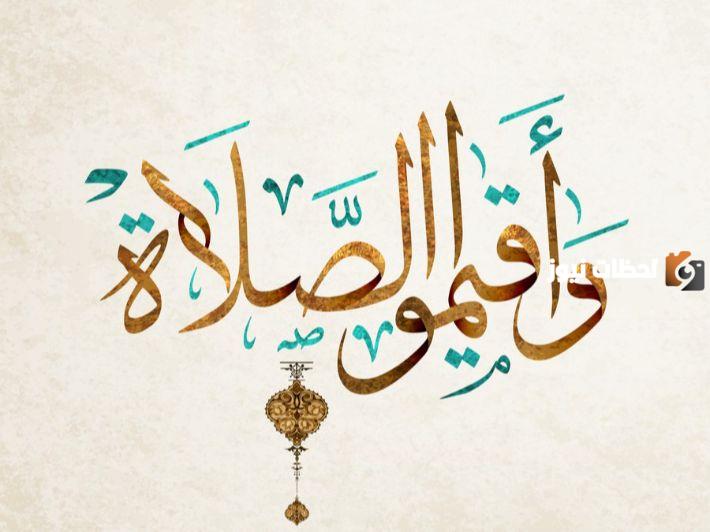 وَأَقِيمُوا الصَّلَاةَ
لحظات نيوز